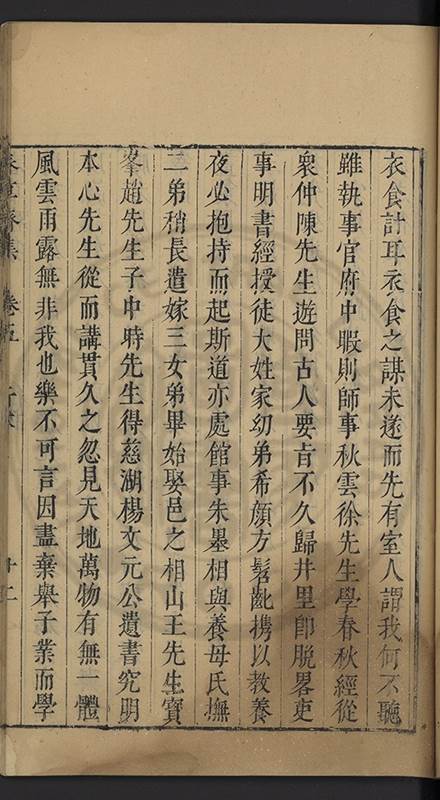 衣食計耳衣食之謀未遂而先有室人謂我何不聽
雖執事官府中暇則師事秋雲徐先生學春秋經從
衆仲陳先生遊問古人要旨不久歸井里卽脫畧吏
事明書經授徒大姓家幼弟希顏方髫齔携以教養
夜必抱持而起斯道亦處館事朱墨相與養母氏撫
二弟稍長遣嫁三女弟畢始娶邑之相山王先生寶
峯趙先生子中時先生得慈湖楊文元公遺書究明
本心先生從而講貫久之忽見天地萬物有無一體
風雲雨露無非我也樂不可言因盡棄舉子業而學
集 卷五